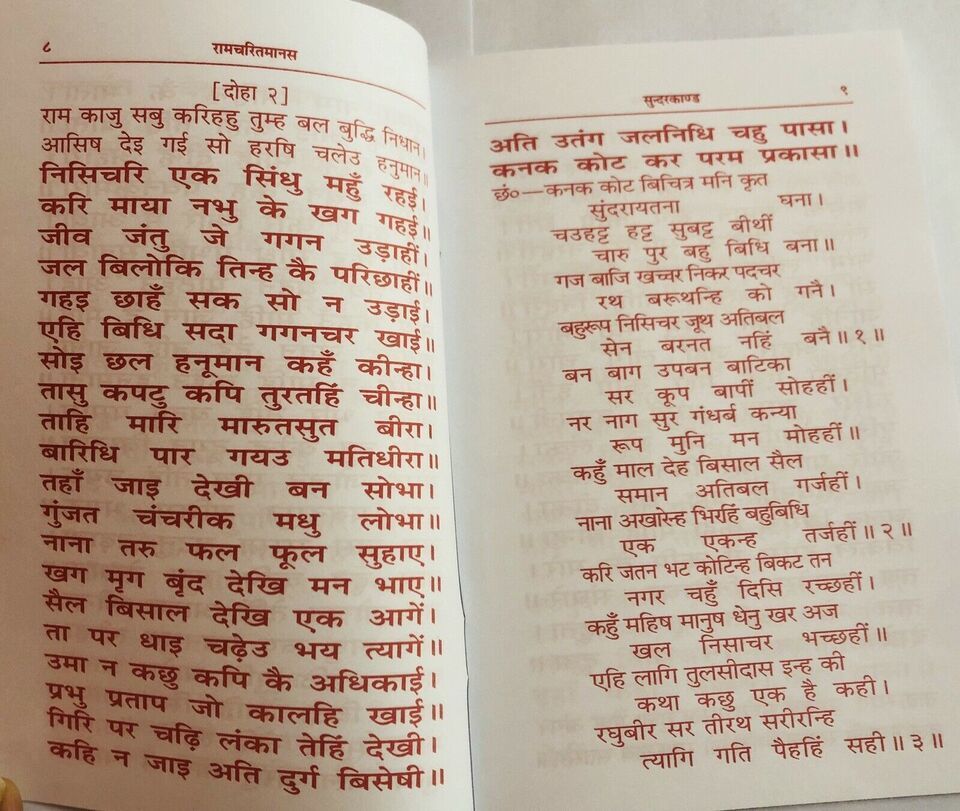 ८
रामचरितमानस
[दोहा २]
राम काजु सबु करिहहु तुम्ह बल बुद्धि निधान।
आसिष देइ गई सो हरषि चलेउ हनुमान॥
निसिचरि एक सिंधु महुँ रहई।
करि माया नभु के खग गहई॥
जीव जंतु जे गगन उड़ाहीं।
जल बिलोकि तिन्ह कै परिछाहीं॥
गहइ छाहँ सक सो न उड़ाई।
एहि बिधि सदा गगनचर खाई॥
सोइ छल हनूमान कहँ कीन्हा।
तासु कपटु कपि तुरतहिं चीन्हा॥
ताहि मारि मारुतसुत बीरा।
बारिधि पार गयउ मतिधीरा॥
तहाँ जाइ देखी बन सोभा।
गुंजत चंचरीक मधु लोभा॥
नाना तरु फल फूल सुहाए।
खग मृग बृंद देखि मन भाए॥
सैल बिसाल देखि एक आगें।
ता पर धाइ चढ़ेउ भय त्यागें॥
उमा न कछु कपि कै अधिकाई।
प्रभु प्रताप जो कालहि खाई॥
गिरि पर चढ़ि लंका तेहिं देखी।
कहि न जाइ अति दुर्ग बिसेषी॥
सुन्दरकाण्ड
९
अति उतंग जलनिधि चहु पासा।
कनक कोट कर परम प्रकासा॥
छं०—कनक कोट बिचित्र मनि कृत
सुंदरायतना घना।
चउहट्ट हट्ट सुबट्ट बीथीं
चारु पुर बहु बिधि बना॥
गज बाजि खच्चर निकर पदचर
रथ बरूथन्हि को गनै।
बहुरूप निसिचर जूथ अतिबल
सेन बरनत नहिं बनै॥१॥
बन बाग उपबन बाटिका
सर कूप बापीं सोहहीं।
नर नाग सुर गंधर्ब कन्या
रूप मुनि मन मोहहीं॥
कहुँ माल देह बिसाल सैल
समान अतिबल गर्जहीं।
नाना अखारेन्ह भिरहिं बहुबिधि
एक एकन्ह तर्जहीं॥२॥
करि जतन भट कोटिन्ह बिकट तन
नगर चहुँ दिसि रच्छहीं।
कहुँ महिष मानुष धेनु खर अज
खल निसाचर भच्छहीं॥
एहि लागि तुलसीदास इन्ह की
कथा कछु एक है कही।
रघुबीर सर तीरथ सरीरन्हि
त्यागि गति पैहहिं सही॥३॥